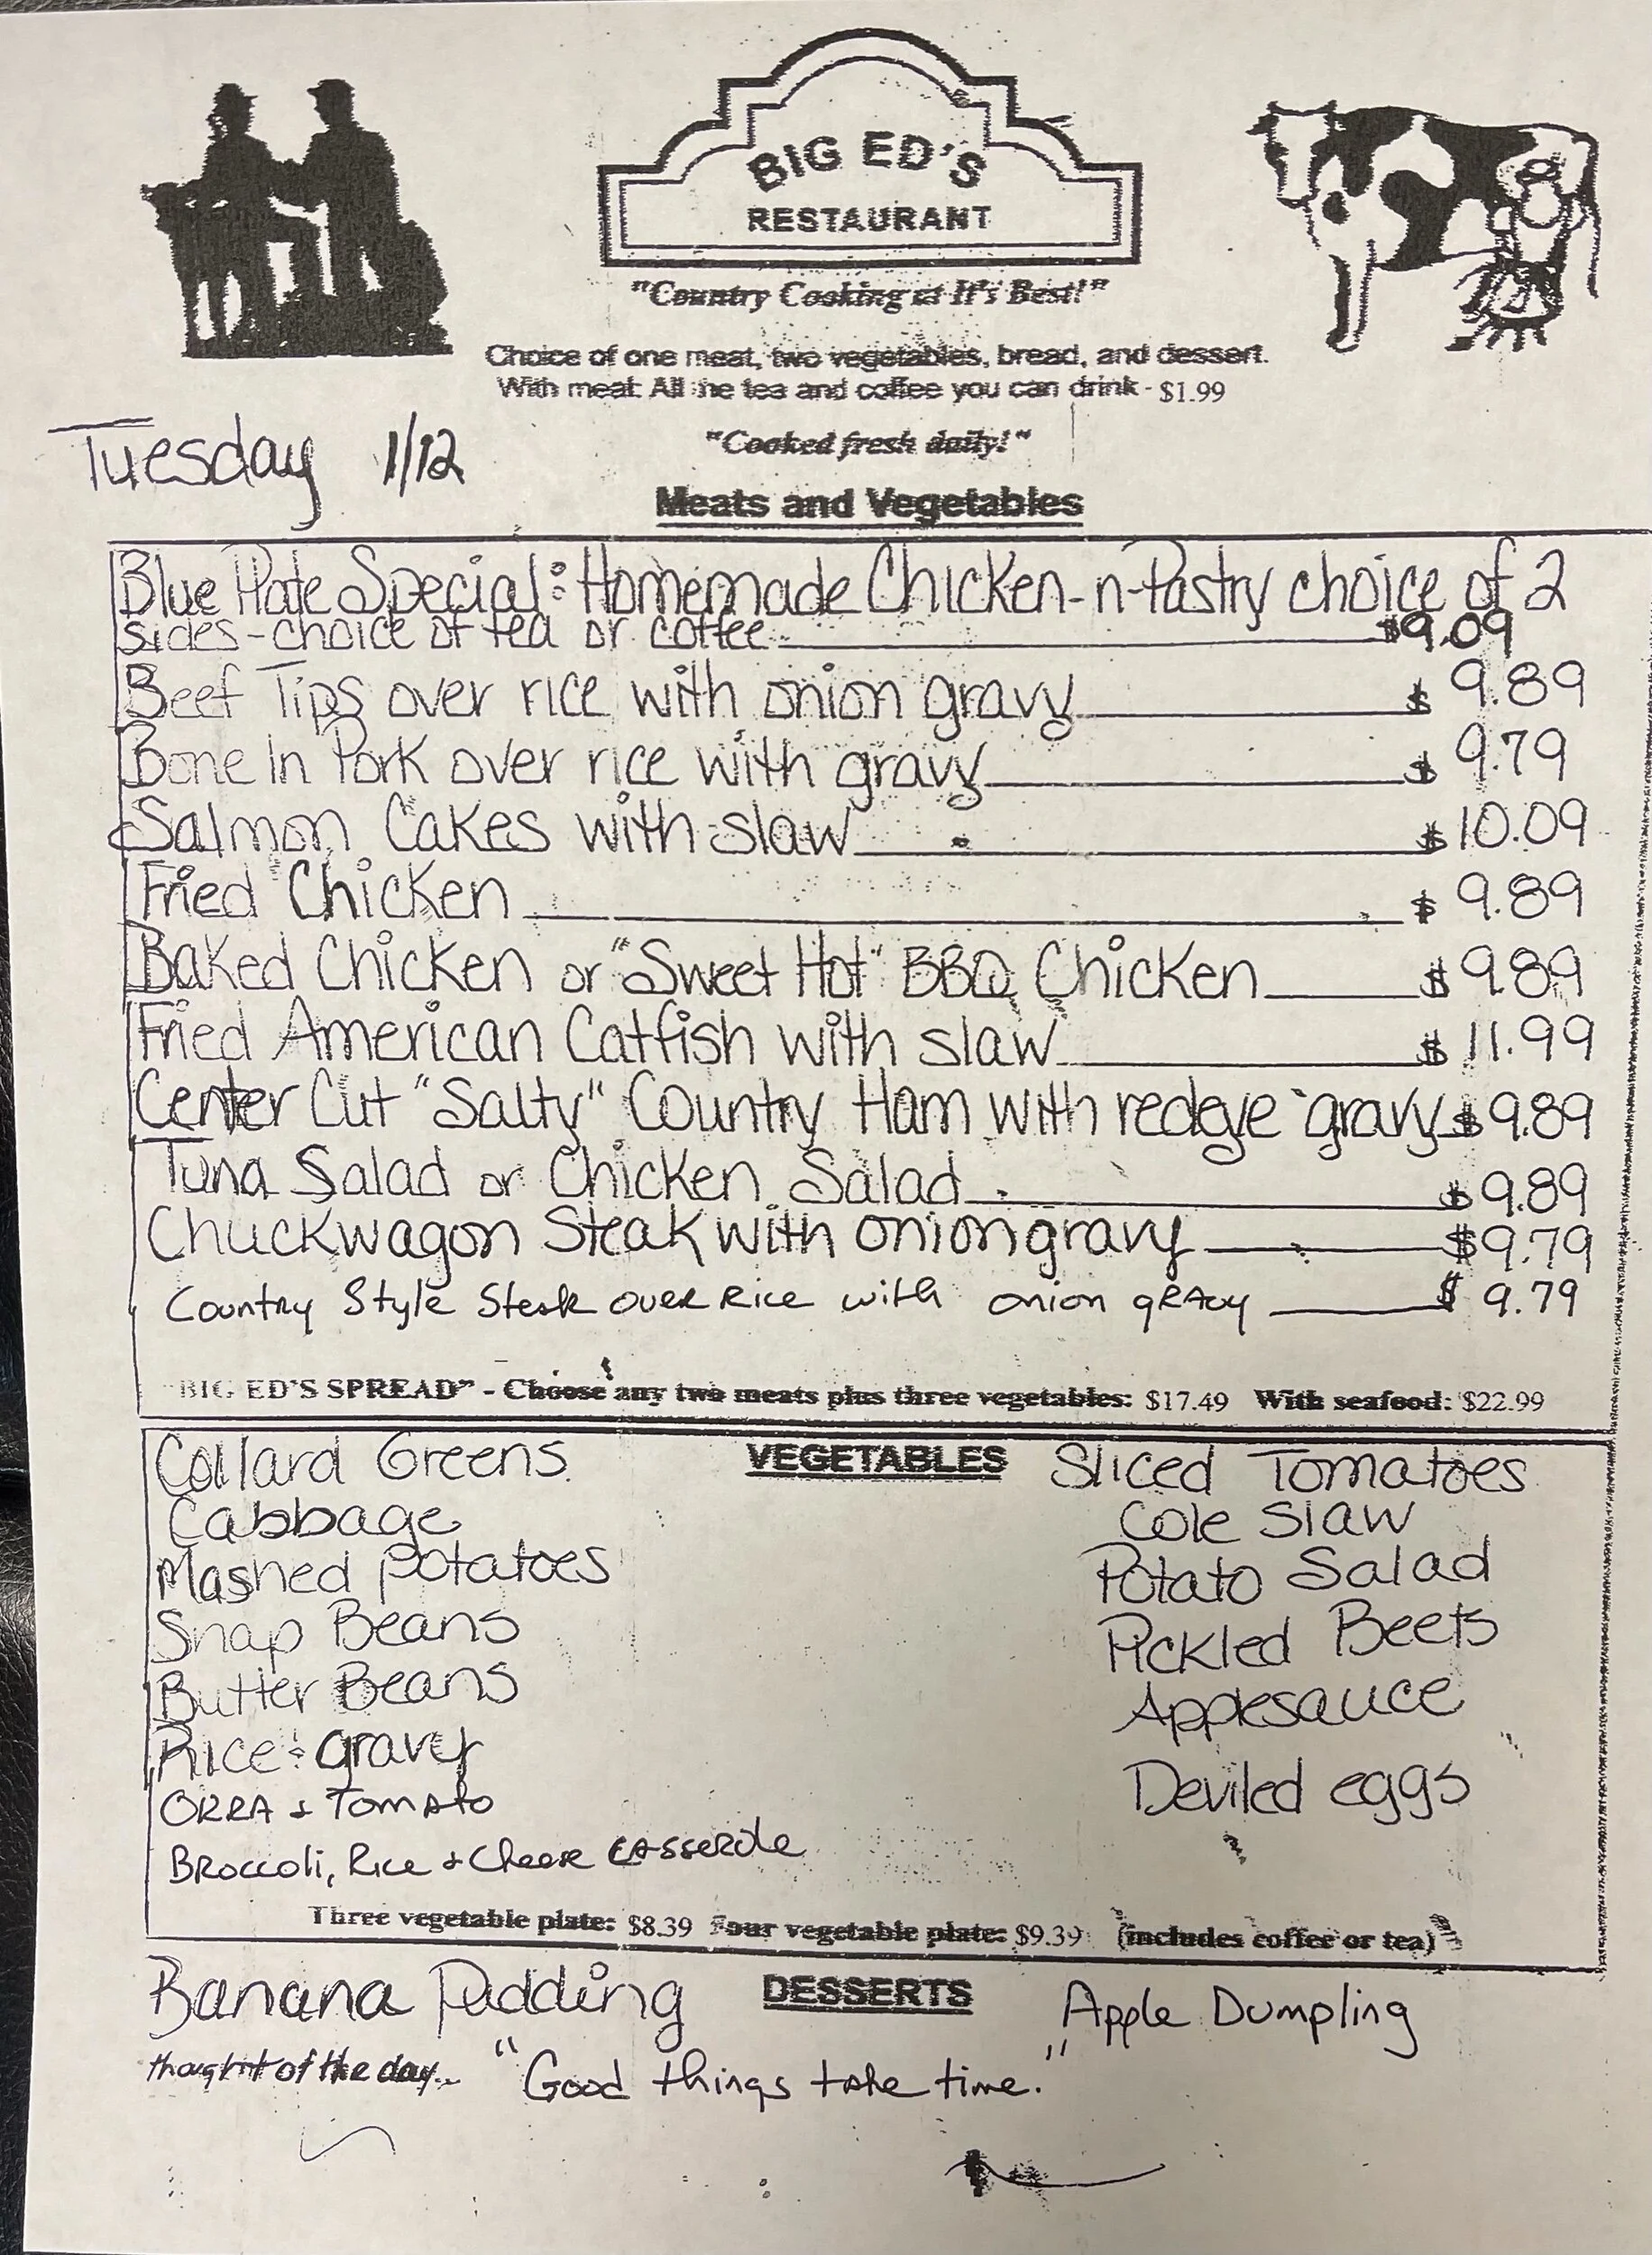 BIG ED'S
RESTAURANT
"Country Cooking at It's Best!"
Choice of one meat, two vegetables, bread, and dessert.
With meal: All the tea and coffee you can drink - $1.99
Tuesday 1/12
"Cooked fresh daily!"
Meats and Vegetables
Blue Plate Special: Homemade Chicken-n-Pastry choice of 2
sides - choice of tea or coffee $9.09
Beef Tips over rice with onion gravy $ 9.89
Bone In Pork over rice with gravy $ 9.79
Salmon Cakes with slaw $ 10.09
Fried Chicken $ 9.89
Baked Chicken or "Sweet Hot" BBQ Chicken $ 9.89
Fried American Catfish with slaw $ 11.99
Center Cut "Salty" Country Ham with redeye gravy $ 9.89
Tuna Salad or Chicken Salad $ 9.89
Chuckwagon Steak with onion gravy $9.79
Country Style Steak over Rice with onion gravy $ 9.79
"BIG ED'S SPREAD" - Choose any two meats plus three vegetables: $17.49 With seafood: $22.99
VEGETABLES
Collard Greens
Cabbage
Mashed Potatoes
Snap Beans
Butter Beans
Rice & gravy
OKRA & Tomato
Broccoli, Rice & Cheese Casserole
Sliced Tomatoes
Cole Slaw
Potato Salad
Pickled Beets
Applesauce
Deviled eggs
Three vegetable plate: $8.39 Four vegetable plate: $9.39 (includes coffee or tea)
DESSERTS
Banana Pudding
Apple Dumpling
thought of the day... "Good things take time."